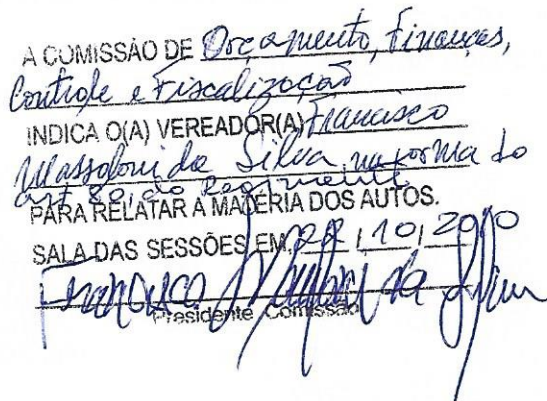 A COMISSÃO DE Orçamento, Finanças,
Controle e Fiscalização
INDICA O(A) VEREADOR(A) Francisco
da Silva, na forma do
art 80, do Regimento
PARA RELATAR A MATÉRIA DOS AUTOS.
SALA DAS SESSÕES EM, 28 / 10 / 2010
Francisco da Silva
Presidente Comissão